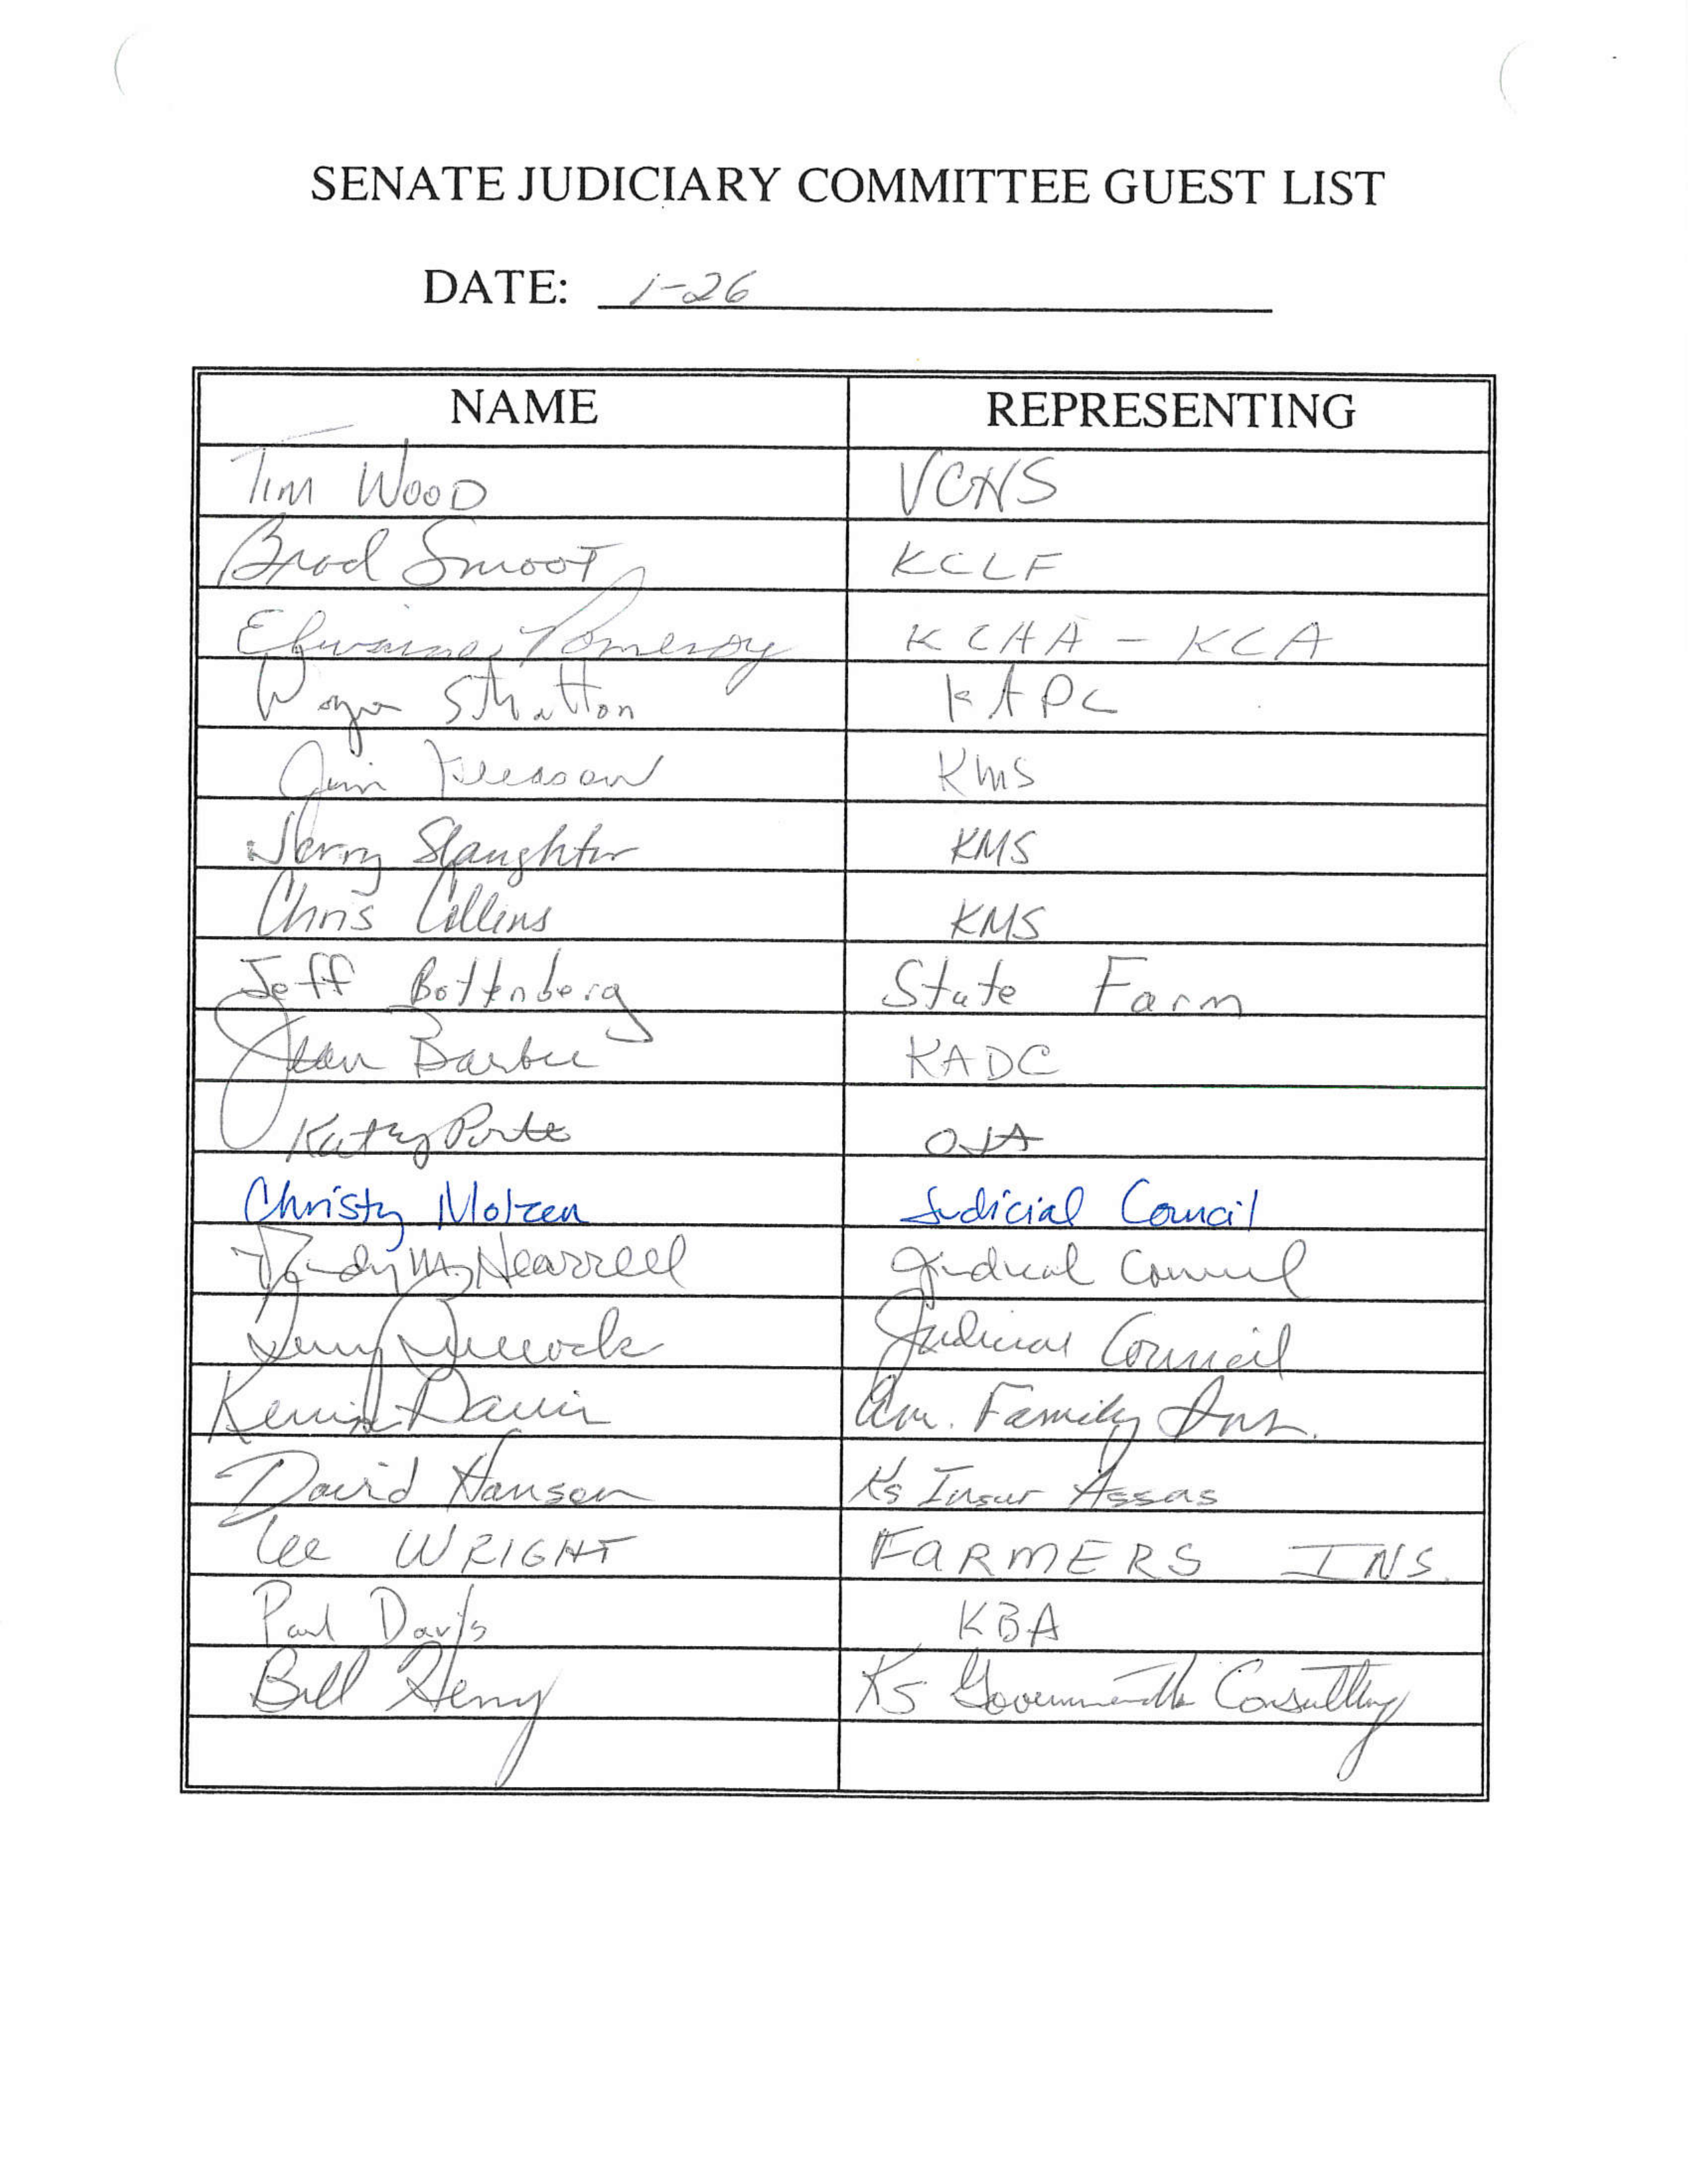 SENATE JUDICIARY COMMITTEE GUEST LIST
DATE: 1-26
NAME REPRESENTING
Tim Wood VCNS
Brad Smoot KCLF
Pomeroy KCHA - KCA
Stratton KAPC
Jim KMS
Jerry Slaughter KMS
Chris Collins KMS
Jeff Bottenberg State Farm
Jean Barbee KADC
Kathy Porter OJA
Christy Molzen Judicial Council
Randy M. Hearrell Judicial Council
Judicial Council
Kevin Davis Am. Family Ins.
David Hanson Ks Insur Assns
Lee WRIGHT FARMERS INS.
Paul Davis KBA
Bill Henry Ks Governmental Consulting